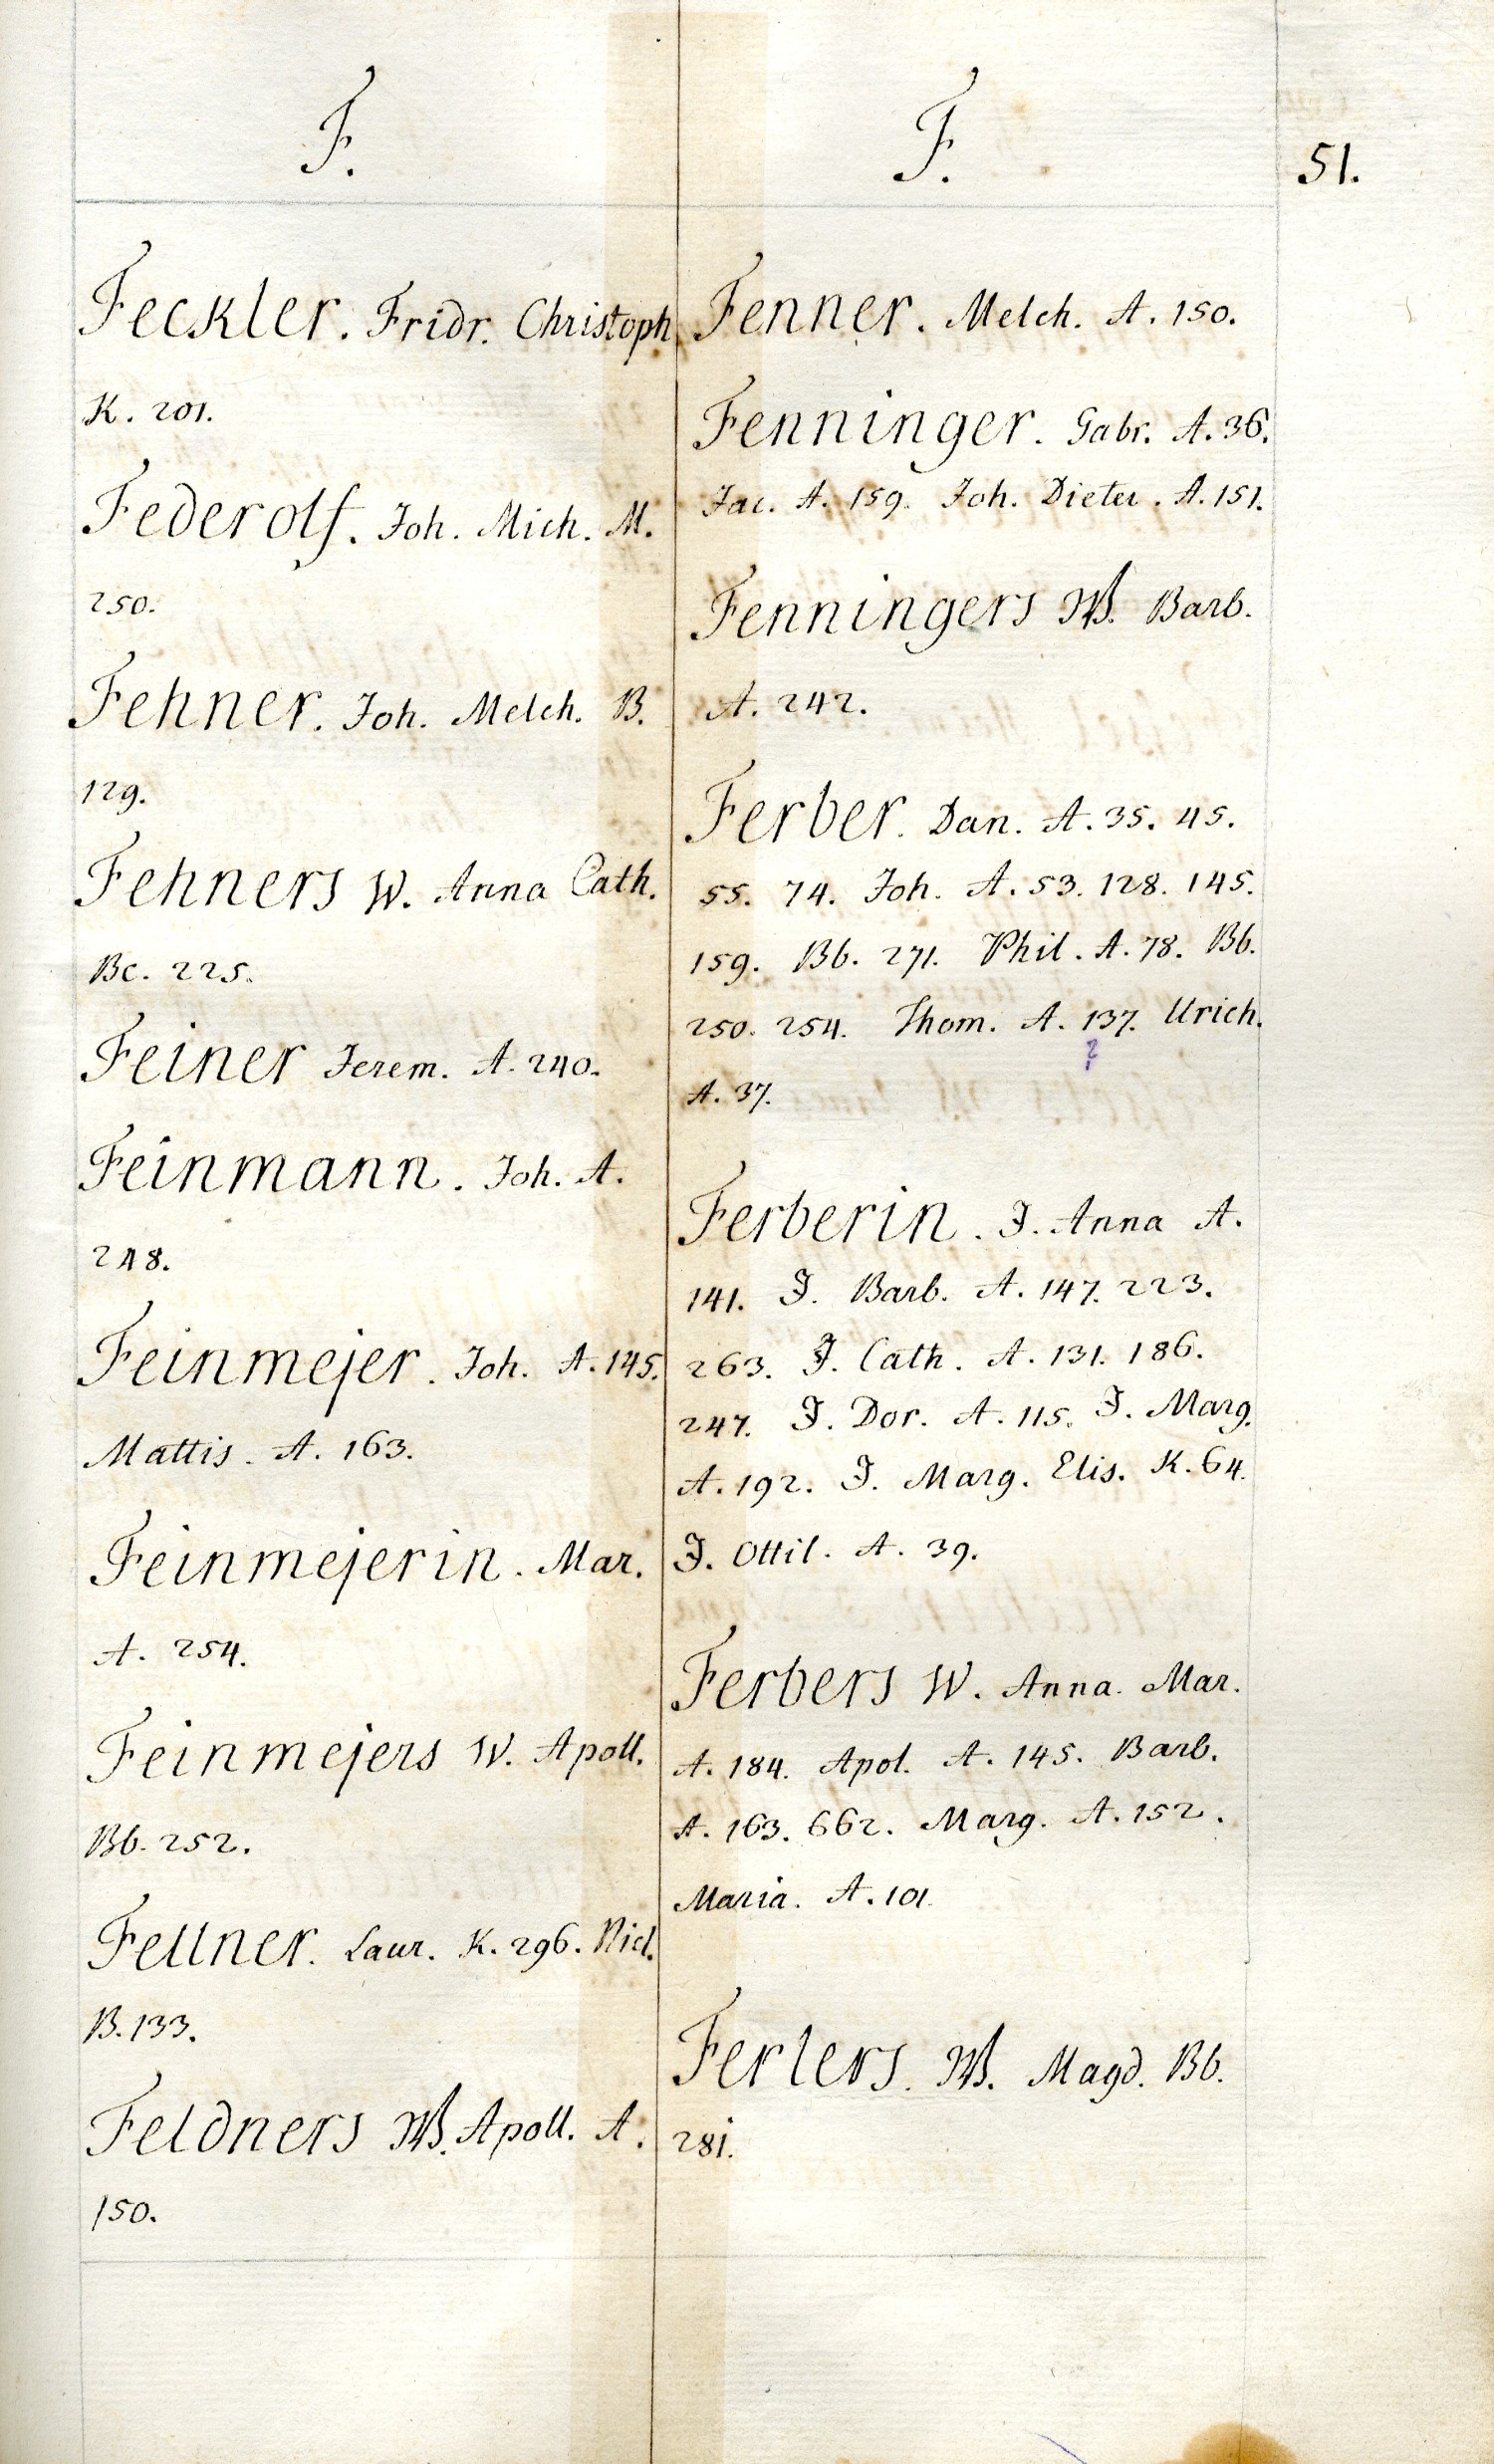 F.
Feckler. Fridr. Christoph
K. 201.
Federolf. Joh. Mich. M.
250.
Fehner. Joh. Melch. B.
129.
Fehners W. Anna Cath.
Bc. 225.
Feiner Jerem. A. 240.
Feinmann. Joh. A.
248.
Feinmejer. Joh. A. 145.
Mattis. A. 163.
Feinmejerin. Mar.
A. 254.
Feinmejers W. Apoll.
Bb. 252.
Fellner. Laur. K. 296. Nicl.
B. 133.
Feldners W. Apoll. A.
150.
F.
Fenner. Melch. A. 150.
Fenninger. Gabr. A. 36.
Jac. A. 159. Joh. Dieter. A. 151.
Fenningers W. Barb.
A. 242.
Ferber. Dan. A. 35. 45.
55. 74. Joh. A. 53. 128. 145.
159. Bb. 271. Phil. A. 78. Bb.
250. 254. Thom. A. 137. Urich.
?
A. 37.
Ferberin. J. Anna A.
141. J. Barb. A. 147. 223.
263. J. Cath. A. 131. 186.
247. J. Dor. A. 115. J. Marg.
A. 192. J. Marg. Elis. K. 64.
J. Ottil. A. 39.
Ferbers W. Anna. Mar.
A. 184. Apol. A. 145. Barb.
A. 163. 662. Marg. A. 152.
Maria. A. 101.
Ferlers. W. Magd. Bb.
281.
51.